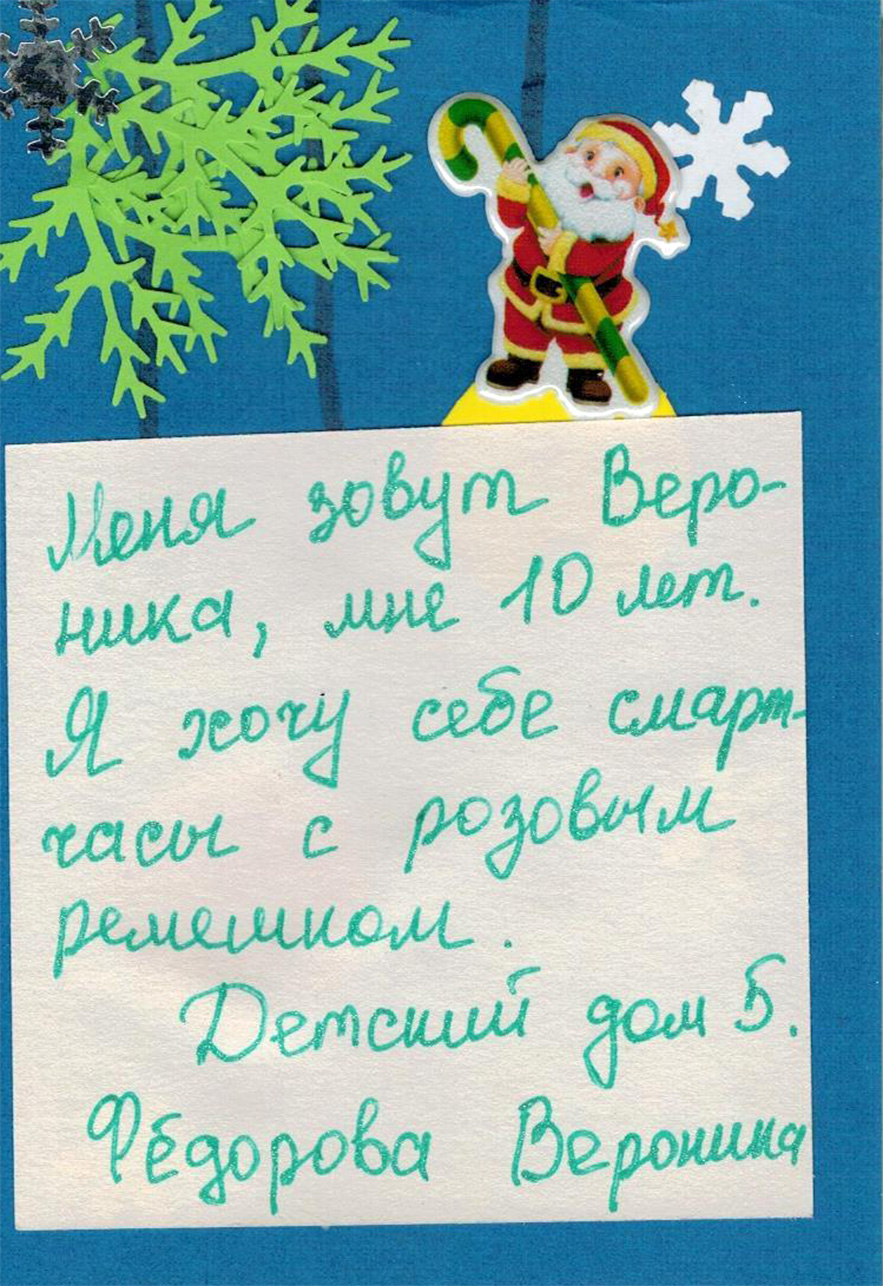 Меня зовут Веро-
ника, мне 10 лет.
Я хочу себе смарт-
часы с розовым
ремешком.
Детский дом 5.
Фёдорова Вероника